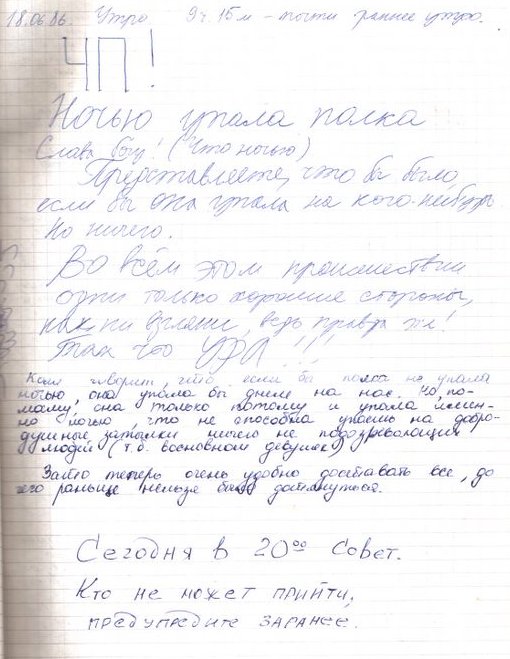 18.06.86. Утро 9ч. 15м – почти раннее утро.
ЧП!
Ночью упала полка
Слава богу! (Что ночью)
Представляете, что бы было,
если бы она упала на кого-нибудь
Но ничего.
Во всём этом происшествии
одни только хорошие стороны,
как ни взгляни, ведь правда же!
Так что УРА!!!
Коля говорит, что если бы полка не упала
ночью, она упала бы днем на нас. Но, по-
моему, она только потому и упала имен-
но ночью, что не способна упасть на добро-
душные затылки ничего не подозревающих
людей (т.е. восновном девушек)
Зато теперь очень удобно доставать все, до
чего раньше нельзя было дотянуться.
Сегодня в 20⁰⁰ Совет.
Кто не может прийти,
предупредите заранее.